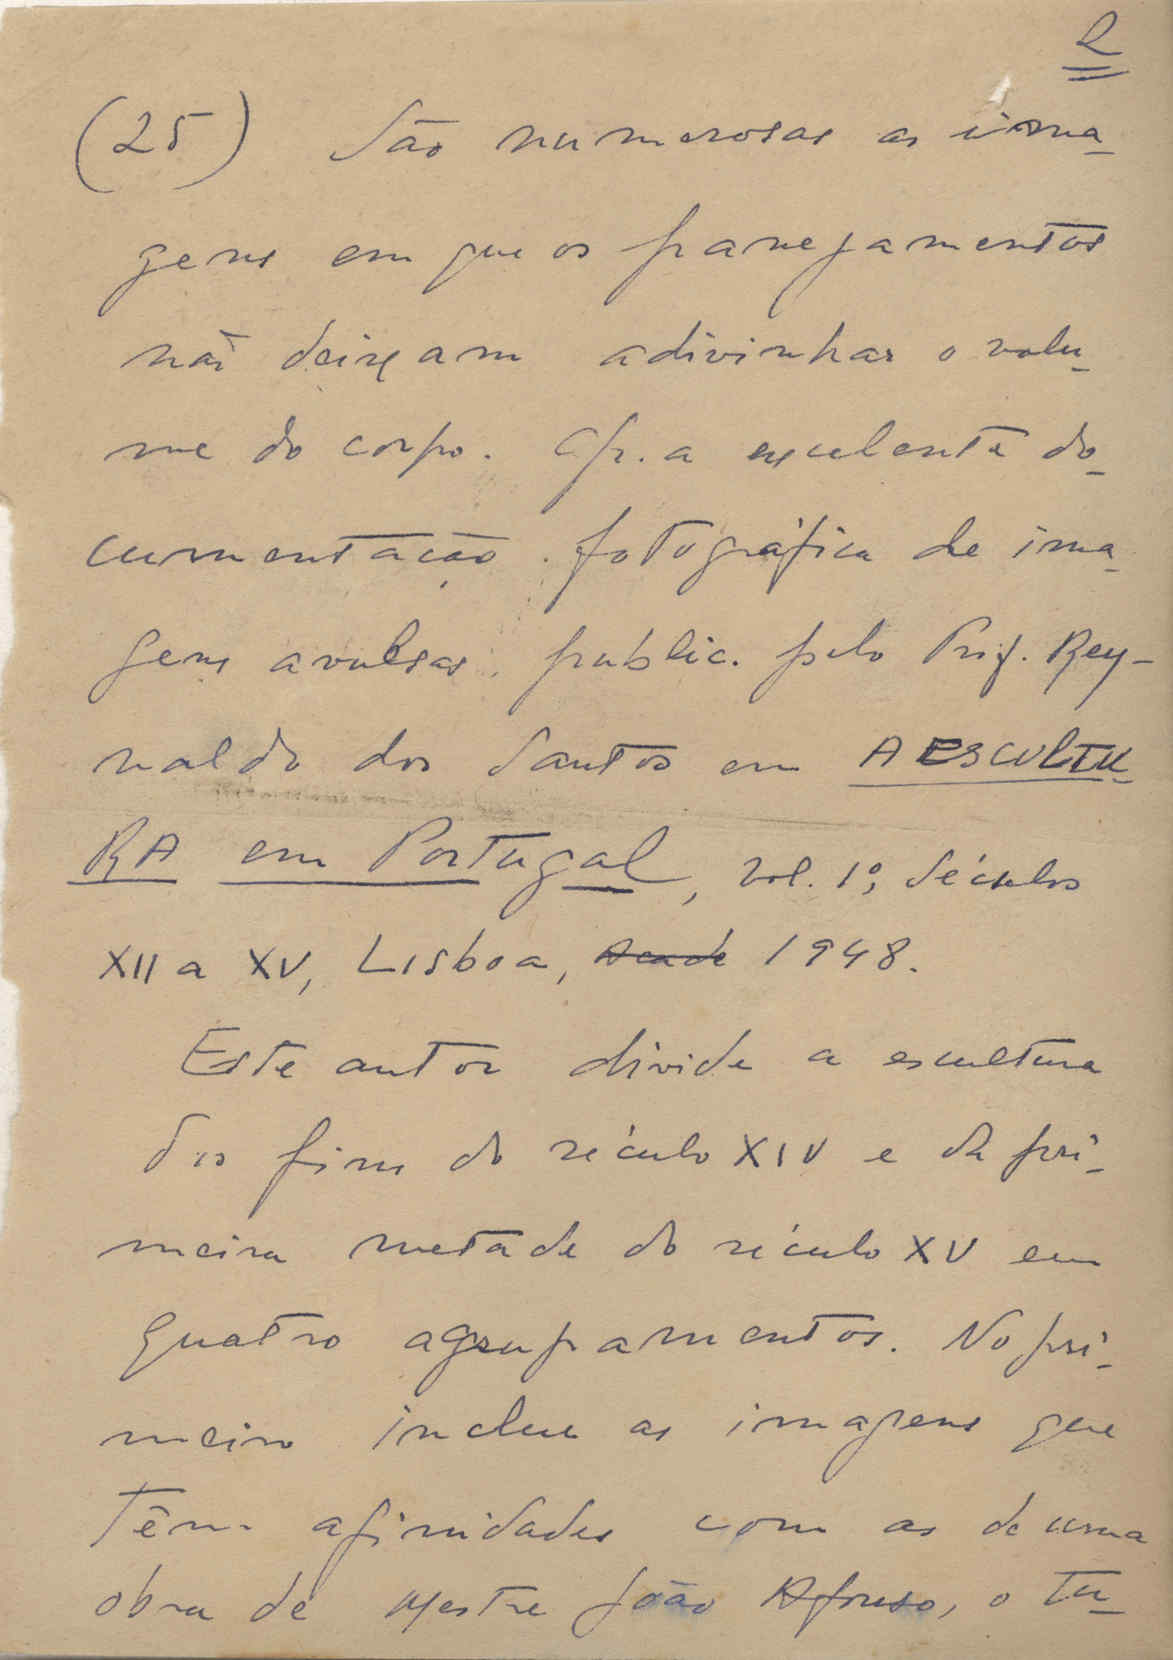 2
(25) São numerosas as ima-
gens em que os panejamentos
não deixam adivinhar o volu-
me do corpo. Cfr. a excelente do-
cumentação fotográfica de ima-
gens avulsas, public. pelo Prof. Rey-
naldo dos Santos em A ESCULTU-
RA em Portugal, vol. 1º, Séculos
XII a XV, Lisboa, Acade 1948.
Este autor divide a escultura
dos fins do século XIV e da pri-
meira metade do século XV em
quatro agrupamentos. No pri-
meiro inclue as imagens que
têm afinidades com as de uma
obra de Mestre João Afonso, o tu-